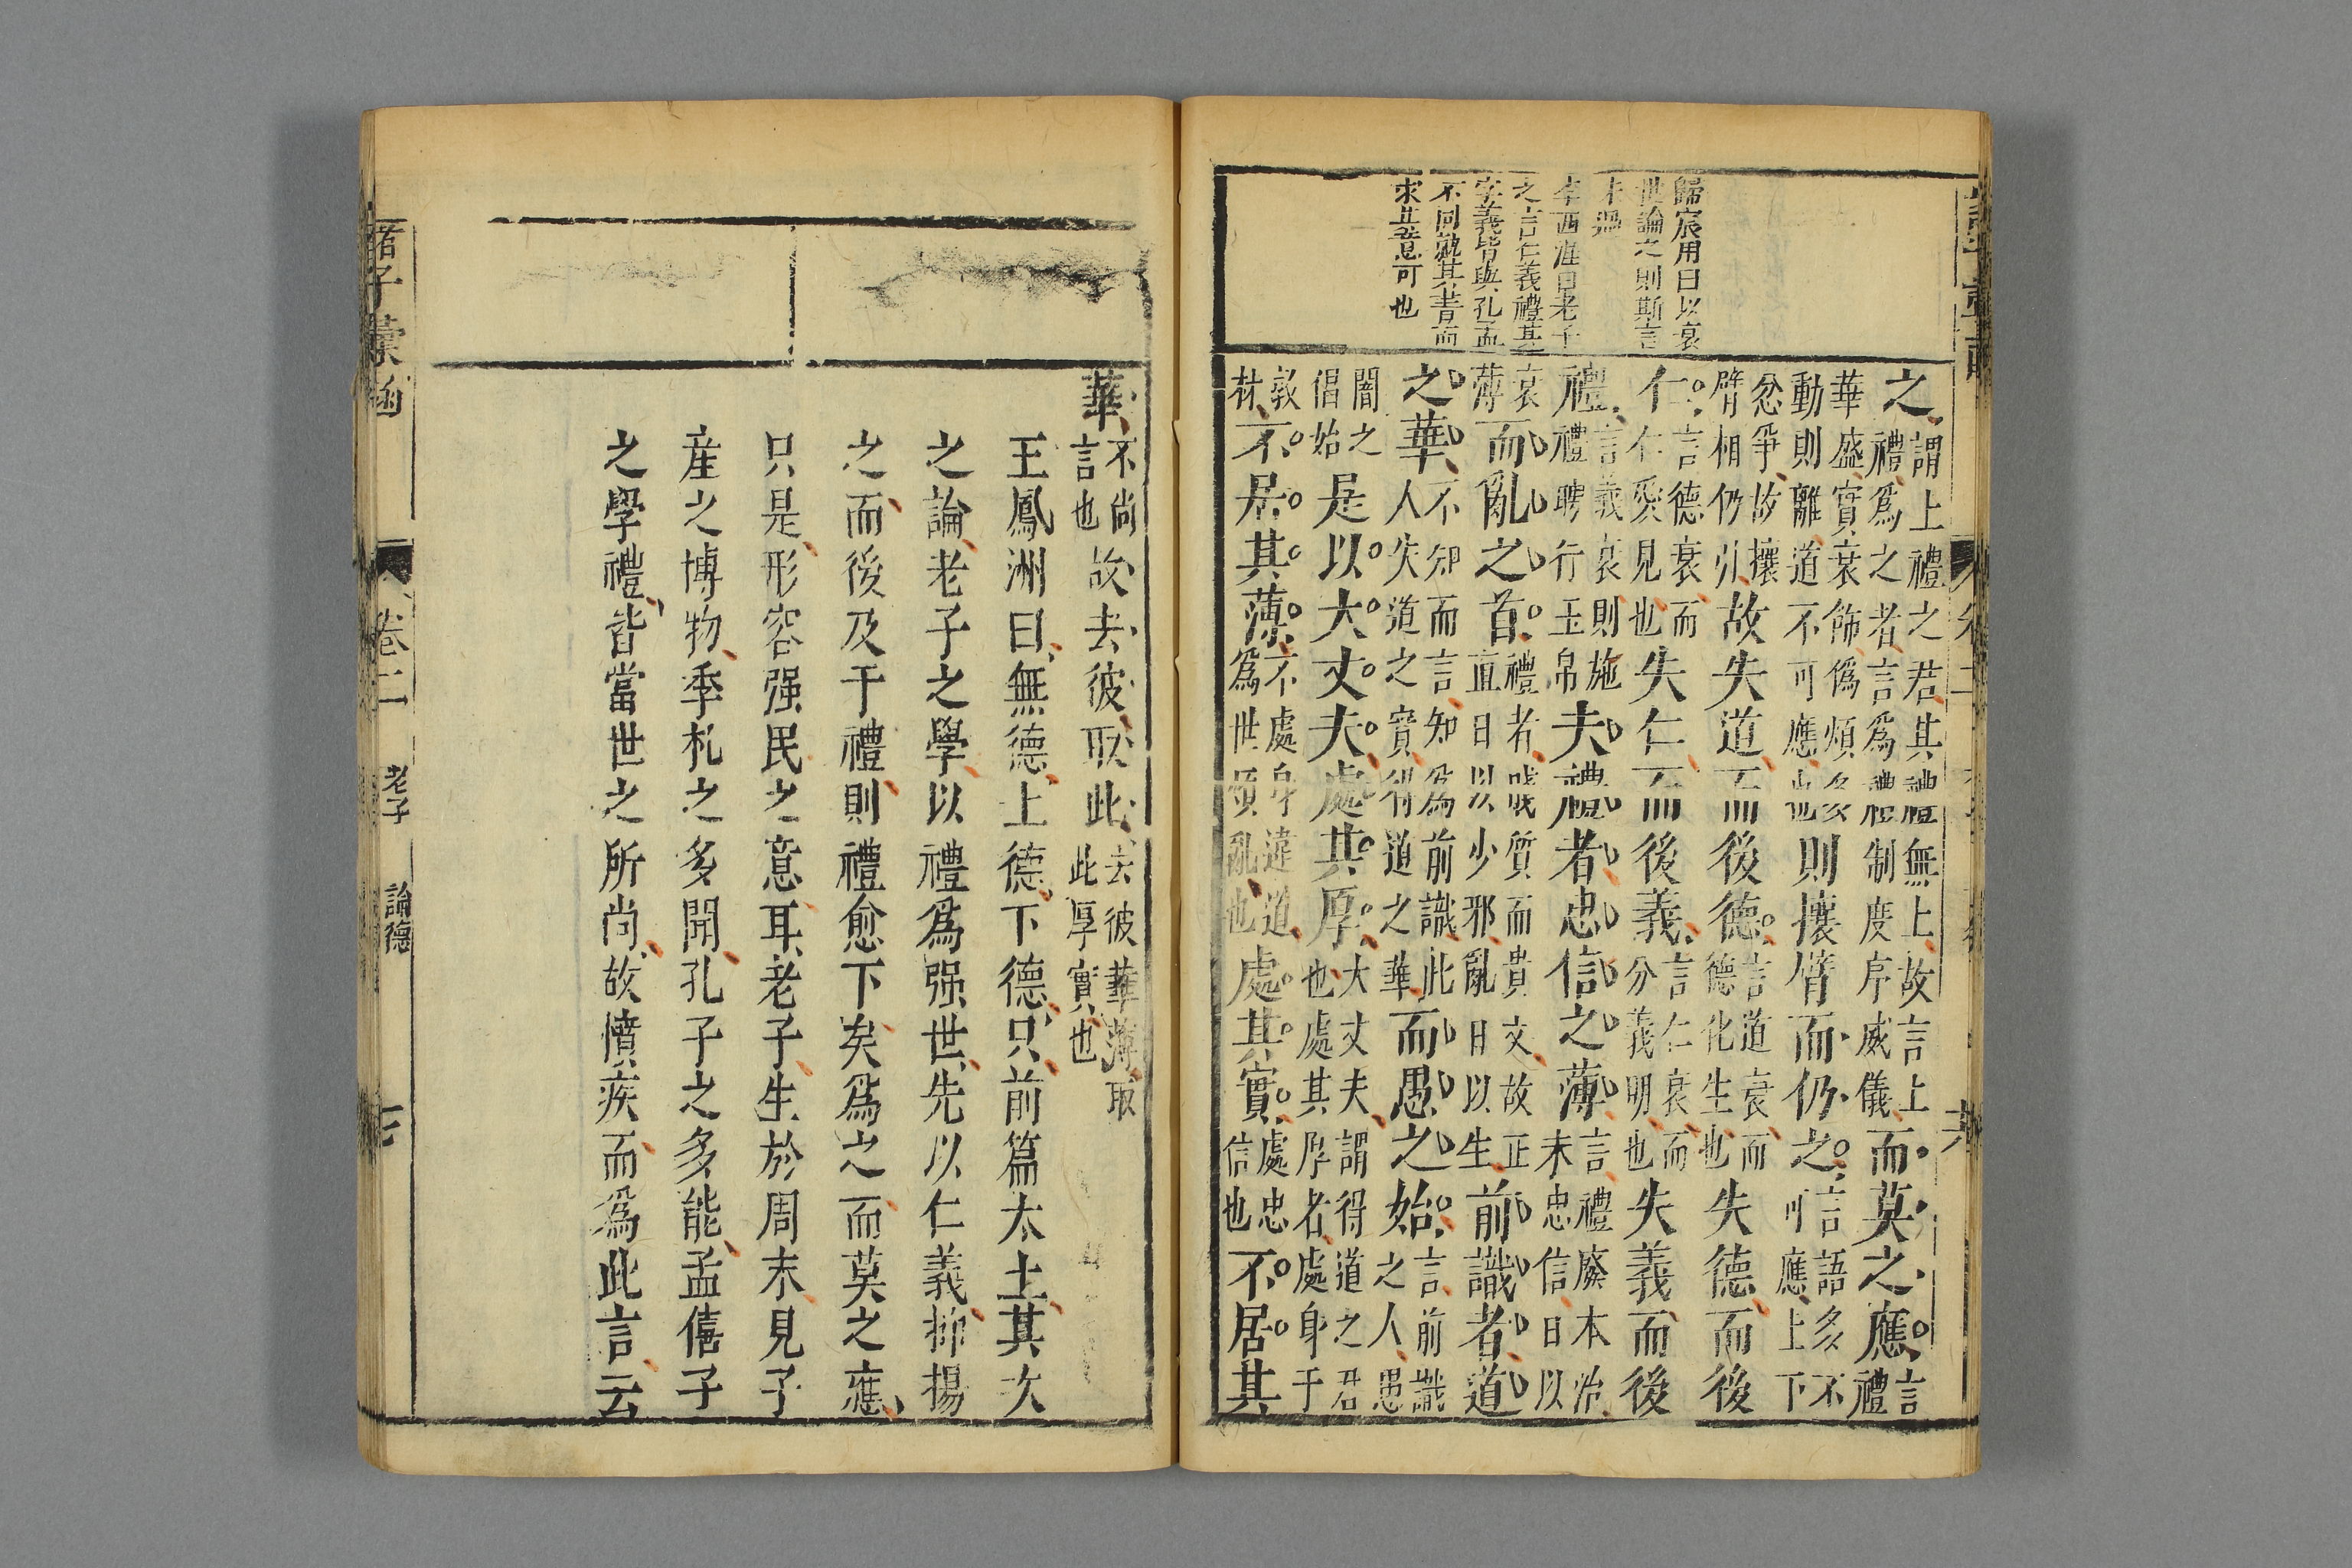 歸宸用曰以衰
世論之則斯言
未過
李西涯曰老子
之言仁義禮其
字義皆與孔孟
不同就其書而
求其意可也
之謂上禮之君其禮無上故言上禮爲之者言爲禮制度序威儀而莫之應言禮
華盛實衰飾僞煩多動則離道不可應也則攘臂而仍之言語多不可應上下
忿爭故攘臂相仍引故失道而後德言道衰而德化生也失德而後
仁言德衰而仁愛見也失仁而後義言仁衰而分義明也失義而後
禮言義衰則施禮聘行玉帛夫禮者忠信之薄言禮廢本治末忠信日以
衰薄而亂之首禮者賤質而貴文故正直日以少邪亂日以生前識者道
之華不知而言知爲前識此人失道之實得道之華而愚之始言前識之人愚
闇之倡始是以大丈夫處其厚大丈夫謂得道之君也處其厚者處身于
敦材不居其薄不處身違道爲世煩亂也處其實處忠信也不居其
華不尚言也故去彼取此去彼華薄取此厚實也
王鳳洲曰無德上德下德只前篇太上其次
之論老子之學以禮爲强世先以仁義抑揚
之而後及于禮則禮愈下矣爲之而莫之應
只是形容强民之意耳老子生於周末見子
産之博物季札之多聞孔子之多能孟僖子
之學禮皆當世之所尚故憤疾而爲此言云
諸子彙函 卷二 老子 論德